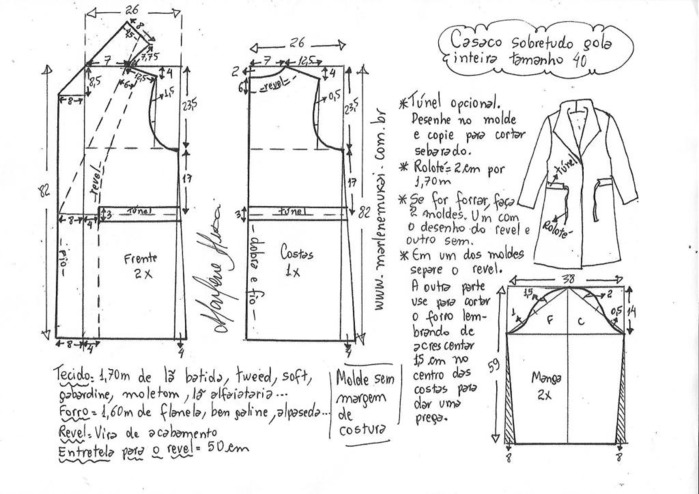 26
8
15
7,75
7
12,5
4
6
8,5
8
1,5
23,5
82
revel
17
8
4
3
túnel
- fio -
Frente
2x
8
4
4
26
7
12,5
2
4
6
revel
0,5
23,5
17
3
túnel
82
- dobra e fio -
Costas
1x
4
www.marlenemukai.com.br
Casaco sobretudo gola
inteira tamanho 40
* Túnel opcional.
Desenhe no molde
e copie para cortar
separado.
* Rolotê = 2 cm por
1,70m
* Se for forrar, faça
2 moldes. Um com
o desenho do revel e
outro sem.
* Em um dos moldes
separe o revel.
A outra parte
use para cortar
o forro lem-
brando de
acrescentar
15 cm no
centro das
costas para
dar uma
prega.
túnel
Rolotê
38
1,5
2
1
F
C
0,5
14
59
Manga
2x
8
8
Tecido = 1,70m de lã batida, tweed, soft,
gabardine, moletom, lã alfaiataria...
Forro = 1,60m de flanela, bengaline, alpaseda...
Revel = Vira de acabamento
Entretela para o revel = 50 cm
Molde sem
margem
de
costura